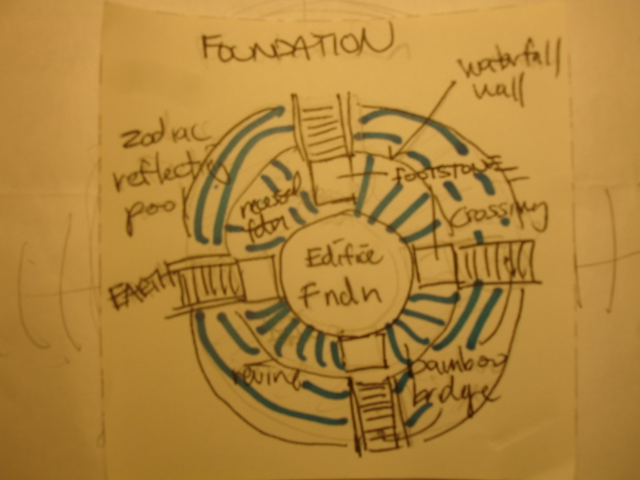 FOUNDATION
waterfall
wall
zodiac
reflecting
pool
FOOTSTONE
recessed
fdn
crossing
Edifice
Fndn
EARTH
revine
bamboo
bridge